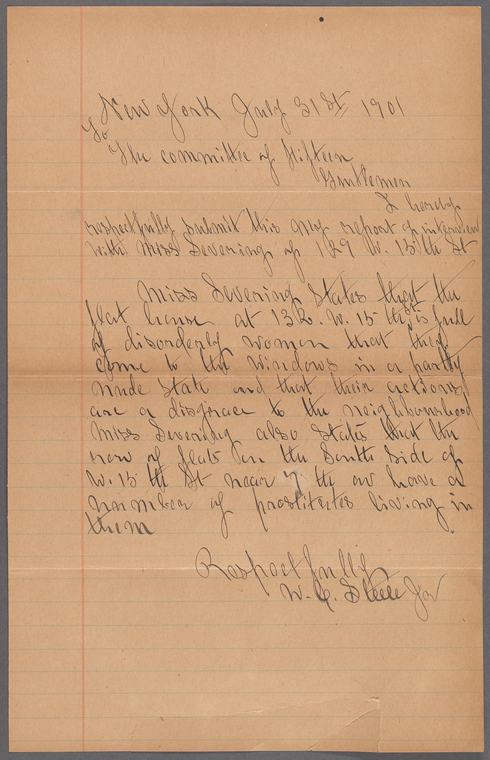 New York July 31st 1901
To
The committee of fifteen
Gentlemen
I hereby
respectfully submit this my report of interview
with Miss Severing of 129 W. 15th St
Miss Severing States that the
flat house at 132. W. 15 th St is full
of disorderly women that they
come to the windows in a partly
nude state and that their actions
are a disgrace to the neighbourhood
Miss Severing also states that the
row of flats on the South Side of
W. 15 th St near 7 the av have a
number of prostitutes living in
them
Respectfully
W. C. Steele Jr